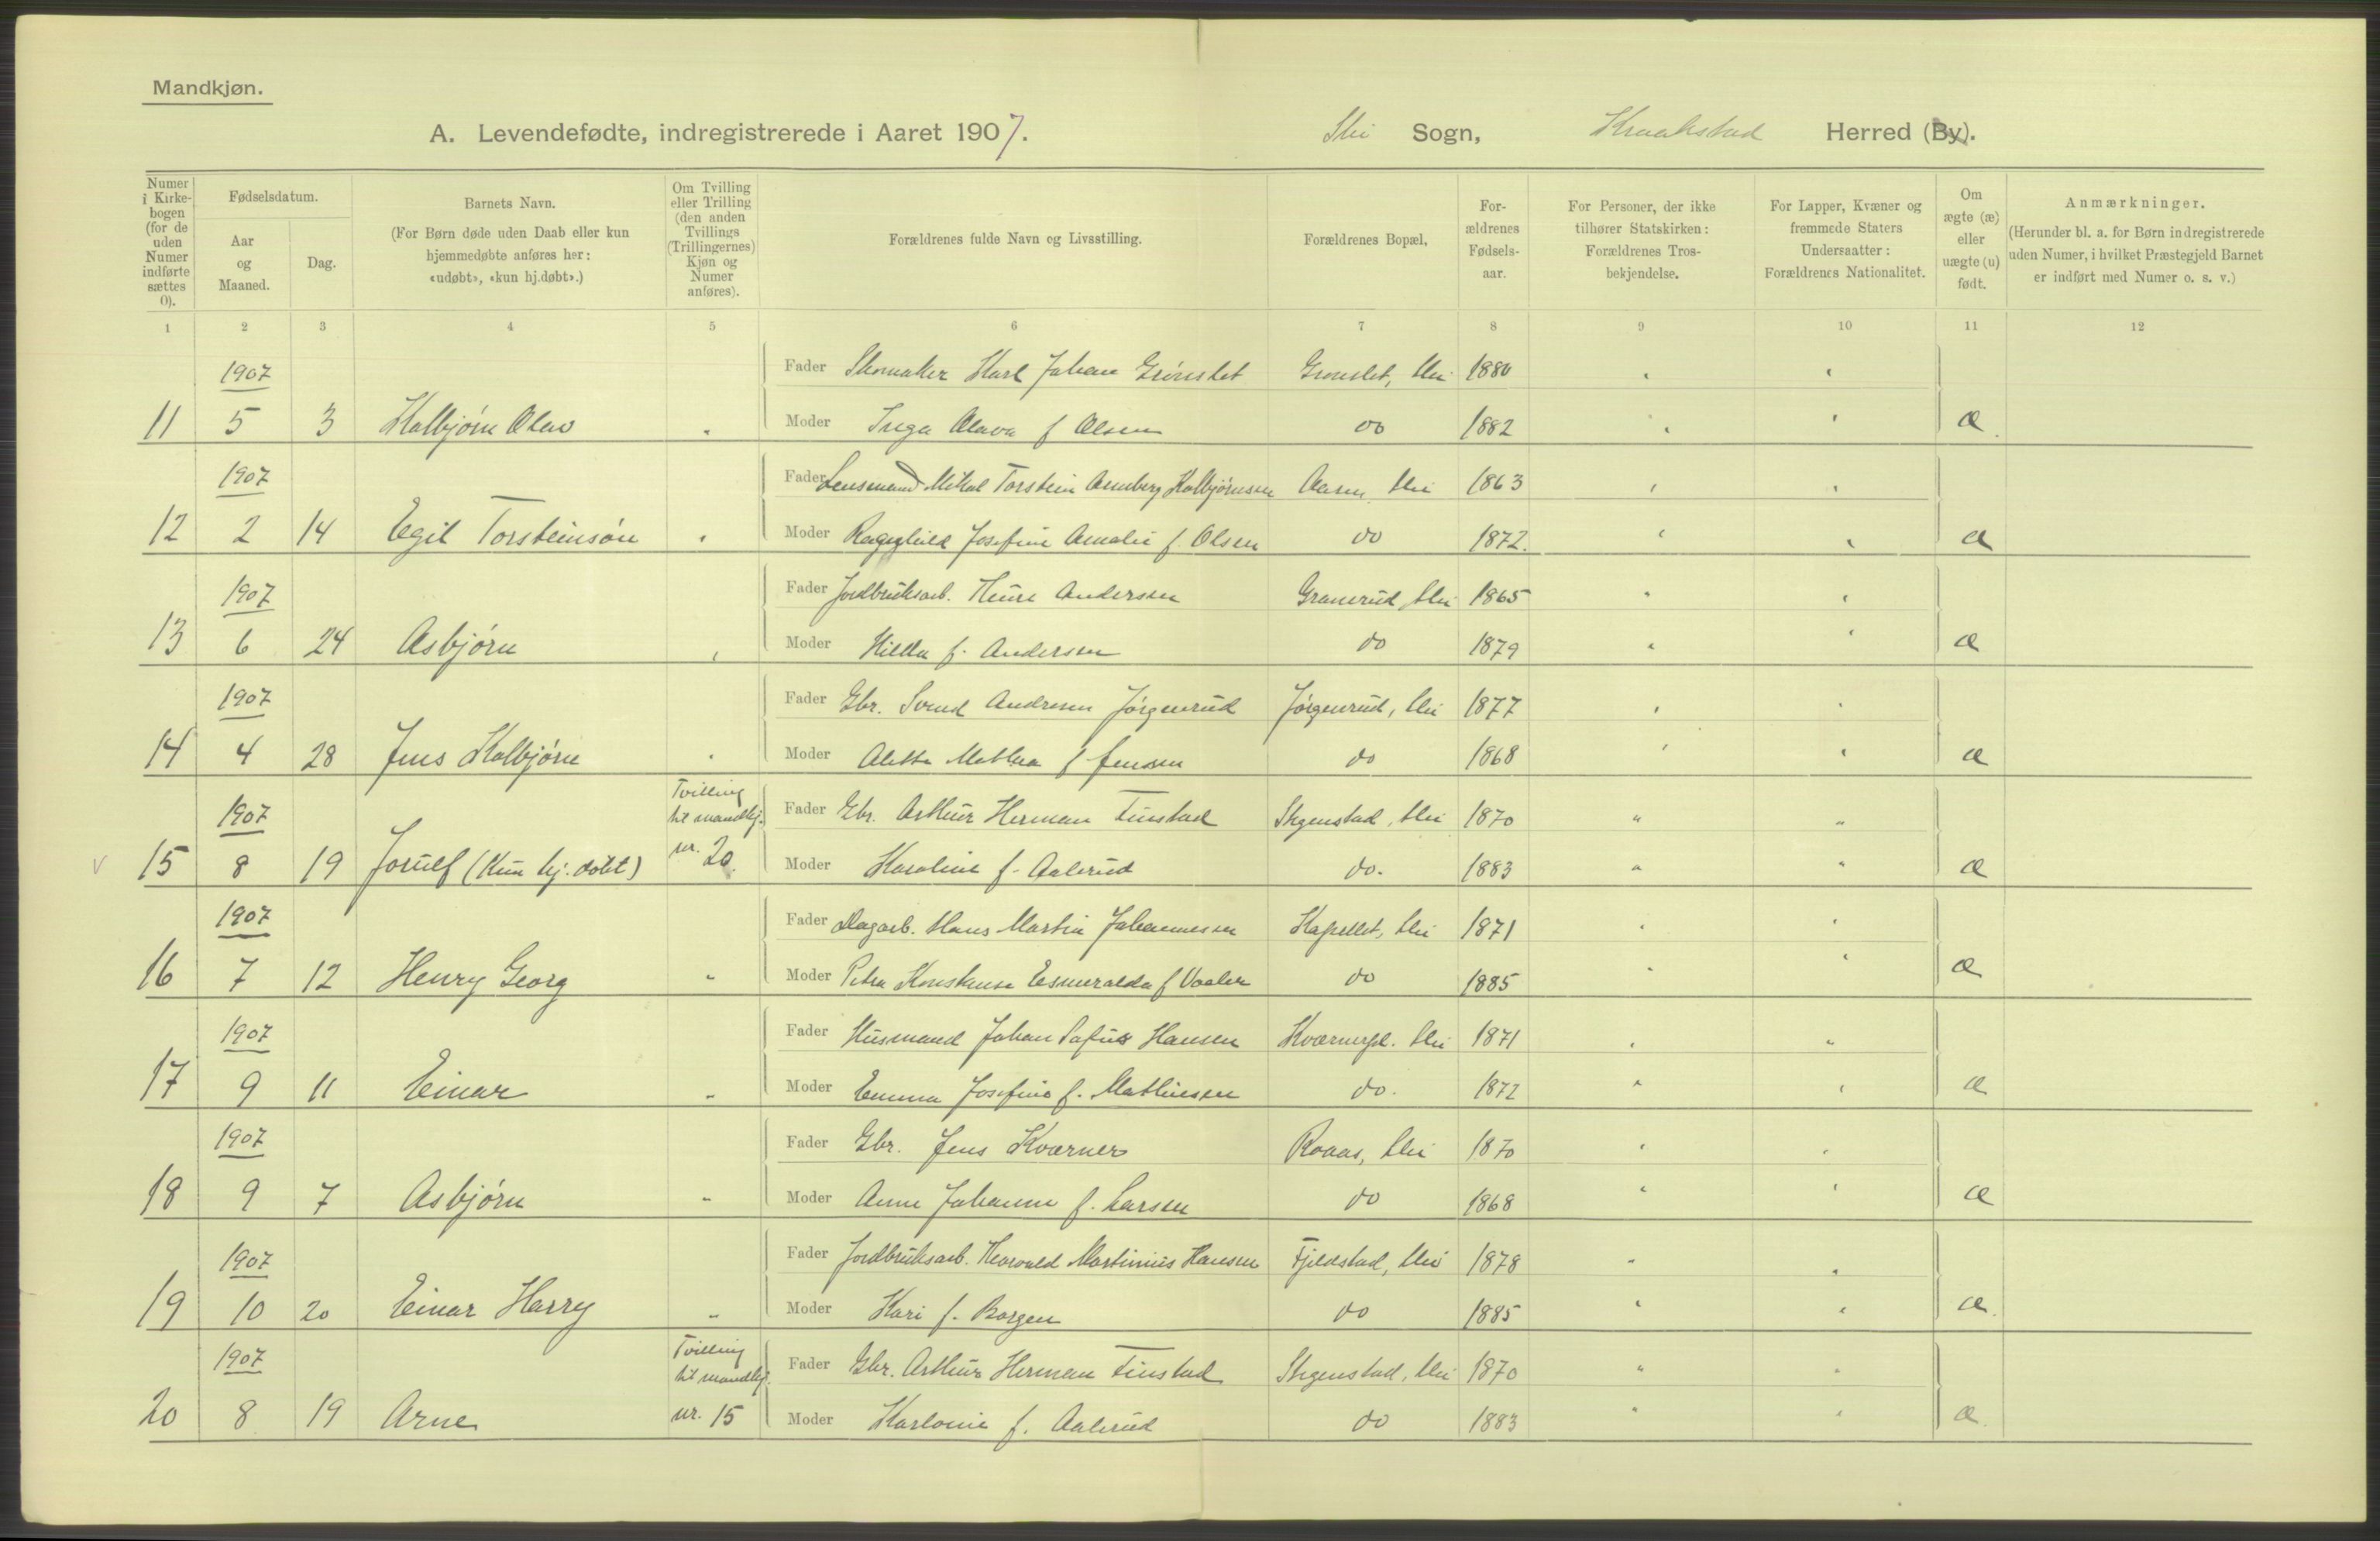 Mandkjøn.
A. Levendefødte, indregistrerede i Aaret 1907. Ski Sogn, Kraakstad Herred (By).
Numer i Kirkebogen (for de uden Numer indførte sættes 0).
Fødselsdatum.
Aar og Maaned.
Dag.
Barnets Navn.
(For Børn døde uden Daab eller kun hjemmedøbte anføres her: «udøbt», «kun hj.døbt».)
Om Tvilling eller Trilling (den anden Tvillings (Trillingernes) Kjøn og Numer anføres).
Forældrenes fulde Navn og Livsstilling.
Forældrenes Bopæl,
For-ældrenes Fødsels-aar.
For Personer, der ikke tilhører Statskirken: Forældrenes Tros-bekjendelse.
For Lapper, Kvæner og fremmede Staters Undersaatter: Forældrenes Nationalitet.
Om ægte (æ) eller uægte (u) født.
Anmærkninger.
(Herunder bl. a. for Børn indregistrerede uden Numer, i hvilket Præstegjeld Barnet er indført med Numer o. s. v.)
1 2 3 4 5 6 7 8 9 10 11 12
1907 Fader Skomaker Karl Johan Grønslet Grønslet, Ski 1880
11 5 3 Kolbjørn Olav Moder Inga Olava f Olsen do 1882 æ
1907 Fader Lensmand Mikal Torstein Arnberg Kolbjørnsen Aasen, Ski 1863
12 2 14 Egil Torsteinsøn Moder Ragnhild Josefine Amalie f. Olsen do 1872. æ
1907 Fader Jordbruksarb. Henrik Andersen Granerud, Ski 1865
13 6 24 Asbjørn Moder Hilda f. Andersen do 1879 æ
1907 Fader Gbr. Svend Andresen Jørgenrud Jørgenrud, Ski 1877
14 4 28 Jens Kolbjørn Moder Alette Mathea f Jensen do 1868 æ
Tvilling
1907 til mandkj. Fader Gbr. Arthur Herman Finstad Skgenstad, Ski 1870
v 15 8 19 Jorulf (Kun hj. døbt) nr. 20. Moder Karoline f. Aalerud do. 1883 æ
1907 Fader Dagarb. Hans Martin Johannessen Kapellet, Ski 1871
16 7 12 Henry Georg Moder Petra Konstanse Esmeralda f Vaaler do 1885 æ
1907 Fader Husmand Johan Sofus Hansen Kværnerpl. Ski 1871
17 9 11 Einar Moder Emma Josefine f. Mathiesen do. 1872 æ
1907 Fader Gbr. Jens Kværner Roaas, Ski 1870
18 9 7 Asbjørn Moder Anne Johanne f. Larsen do 1868 æ
1907 Fader Jordbruksarb. Harald Martinius Hansen Fjeldstad, Ski 1878
19 10 20 Einar Harry Moder Kari f. Borgen do 1885 æ.
Tvilling
1907 til mandkj. Fader Gbr. Arthur Herman Finstad Skgenstad, Ski 1870
20 8 19 Arne nr. 15 Moder Karoline f. Aalerud do 1883 æ.